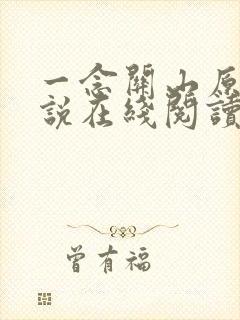 一念關山原
說在綫閱讀
曾有福